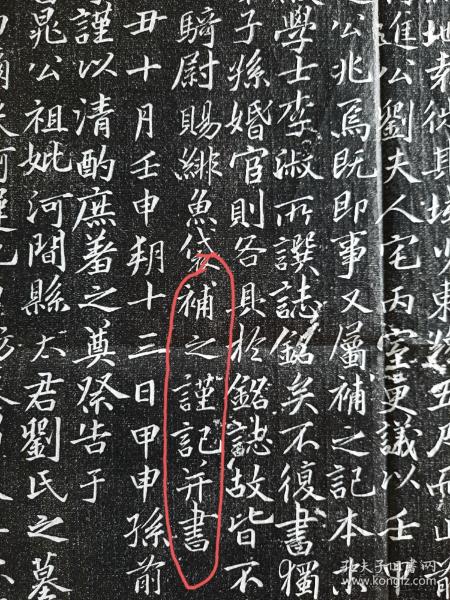 進公劉夫人宅丙室吏議以壬
公兆焉既即事又屬補之記本末
學士李淑所譔誌銘矣不復書獨
子孫婚官則各具於誌故皆不
騎尉賜緋魚袋補之謹記并書
丑十月壬申朔十三日甲申孫前
謹以清酌庶羞之奠祭告于
晁公祖妣河間縣太君劉氏之墓